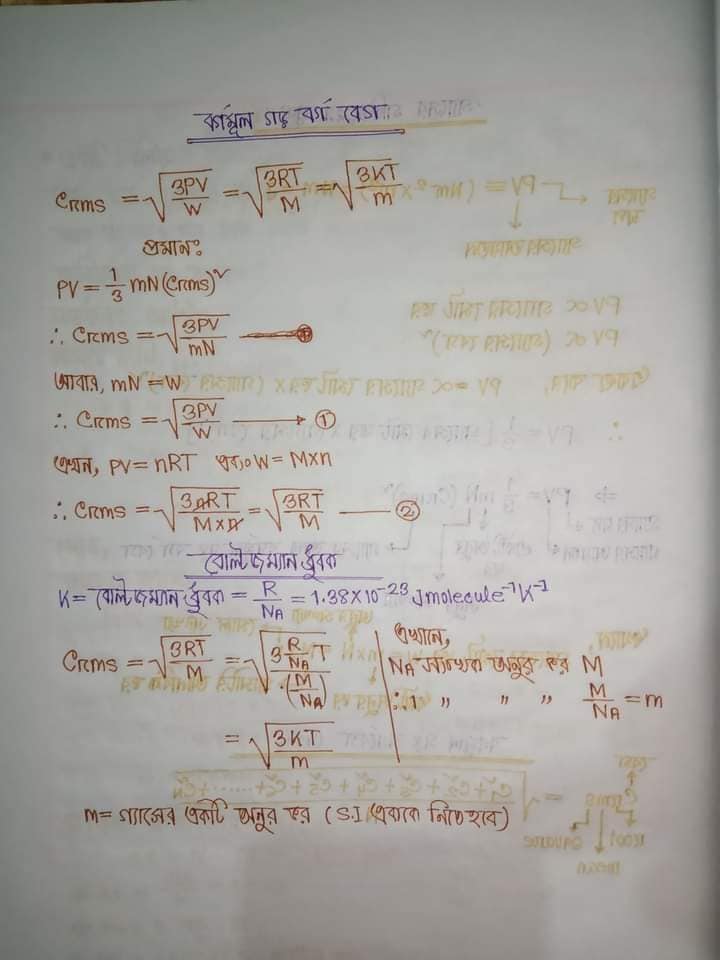 বর্গমূল গড় বর্গ বেগ
Crms = √(3PV/W) = √(3RT/M) = √(3KT/m)
প্রমানঃ
PV = 1/3 mN(Crms)²
∴ Crms = √(3PV/mN)
আবার, mN = W
∴ Crms = √(3PV/W) → ①
এখন, PV = nRT এবং W = M×n
∴ Crms = √(3nRT/M×n) = √(3RT/M) — ②
বোল্টজম্যান ধ্রুবক
K = বোল্টজম্যান ধ্রুবক = R/NA = 1.38×10⁻²³ J molecule⁻¹K⁻¹
Crms = √(3RT/M) = √(3 R/NA T/(M/NA))
= √(3KT/m)
এখানে,
NA সংখ্যক অনুর ভর M
∴ 1 " " " M/NA = m
m = গ্যাসের একটি অনুর ভর (S.I এককে নিতে হবে)